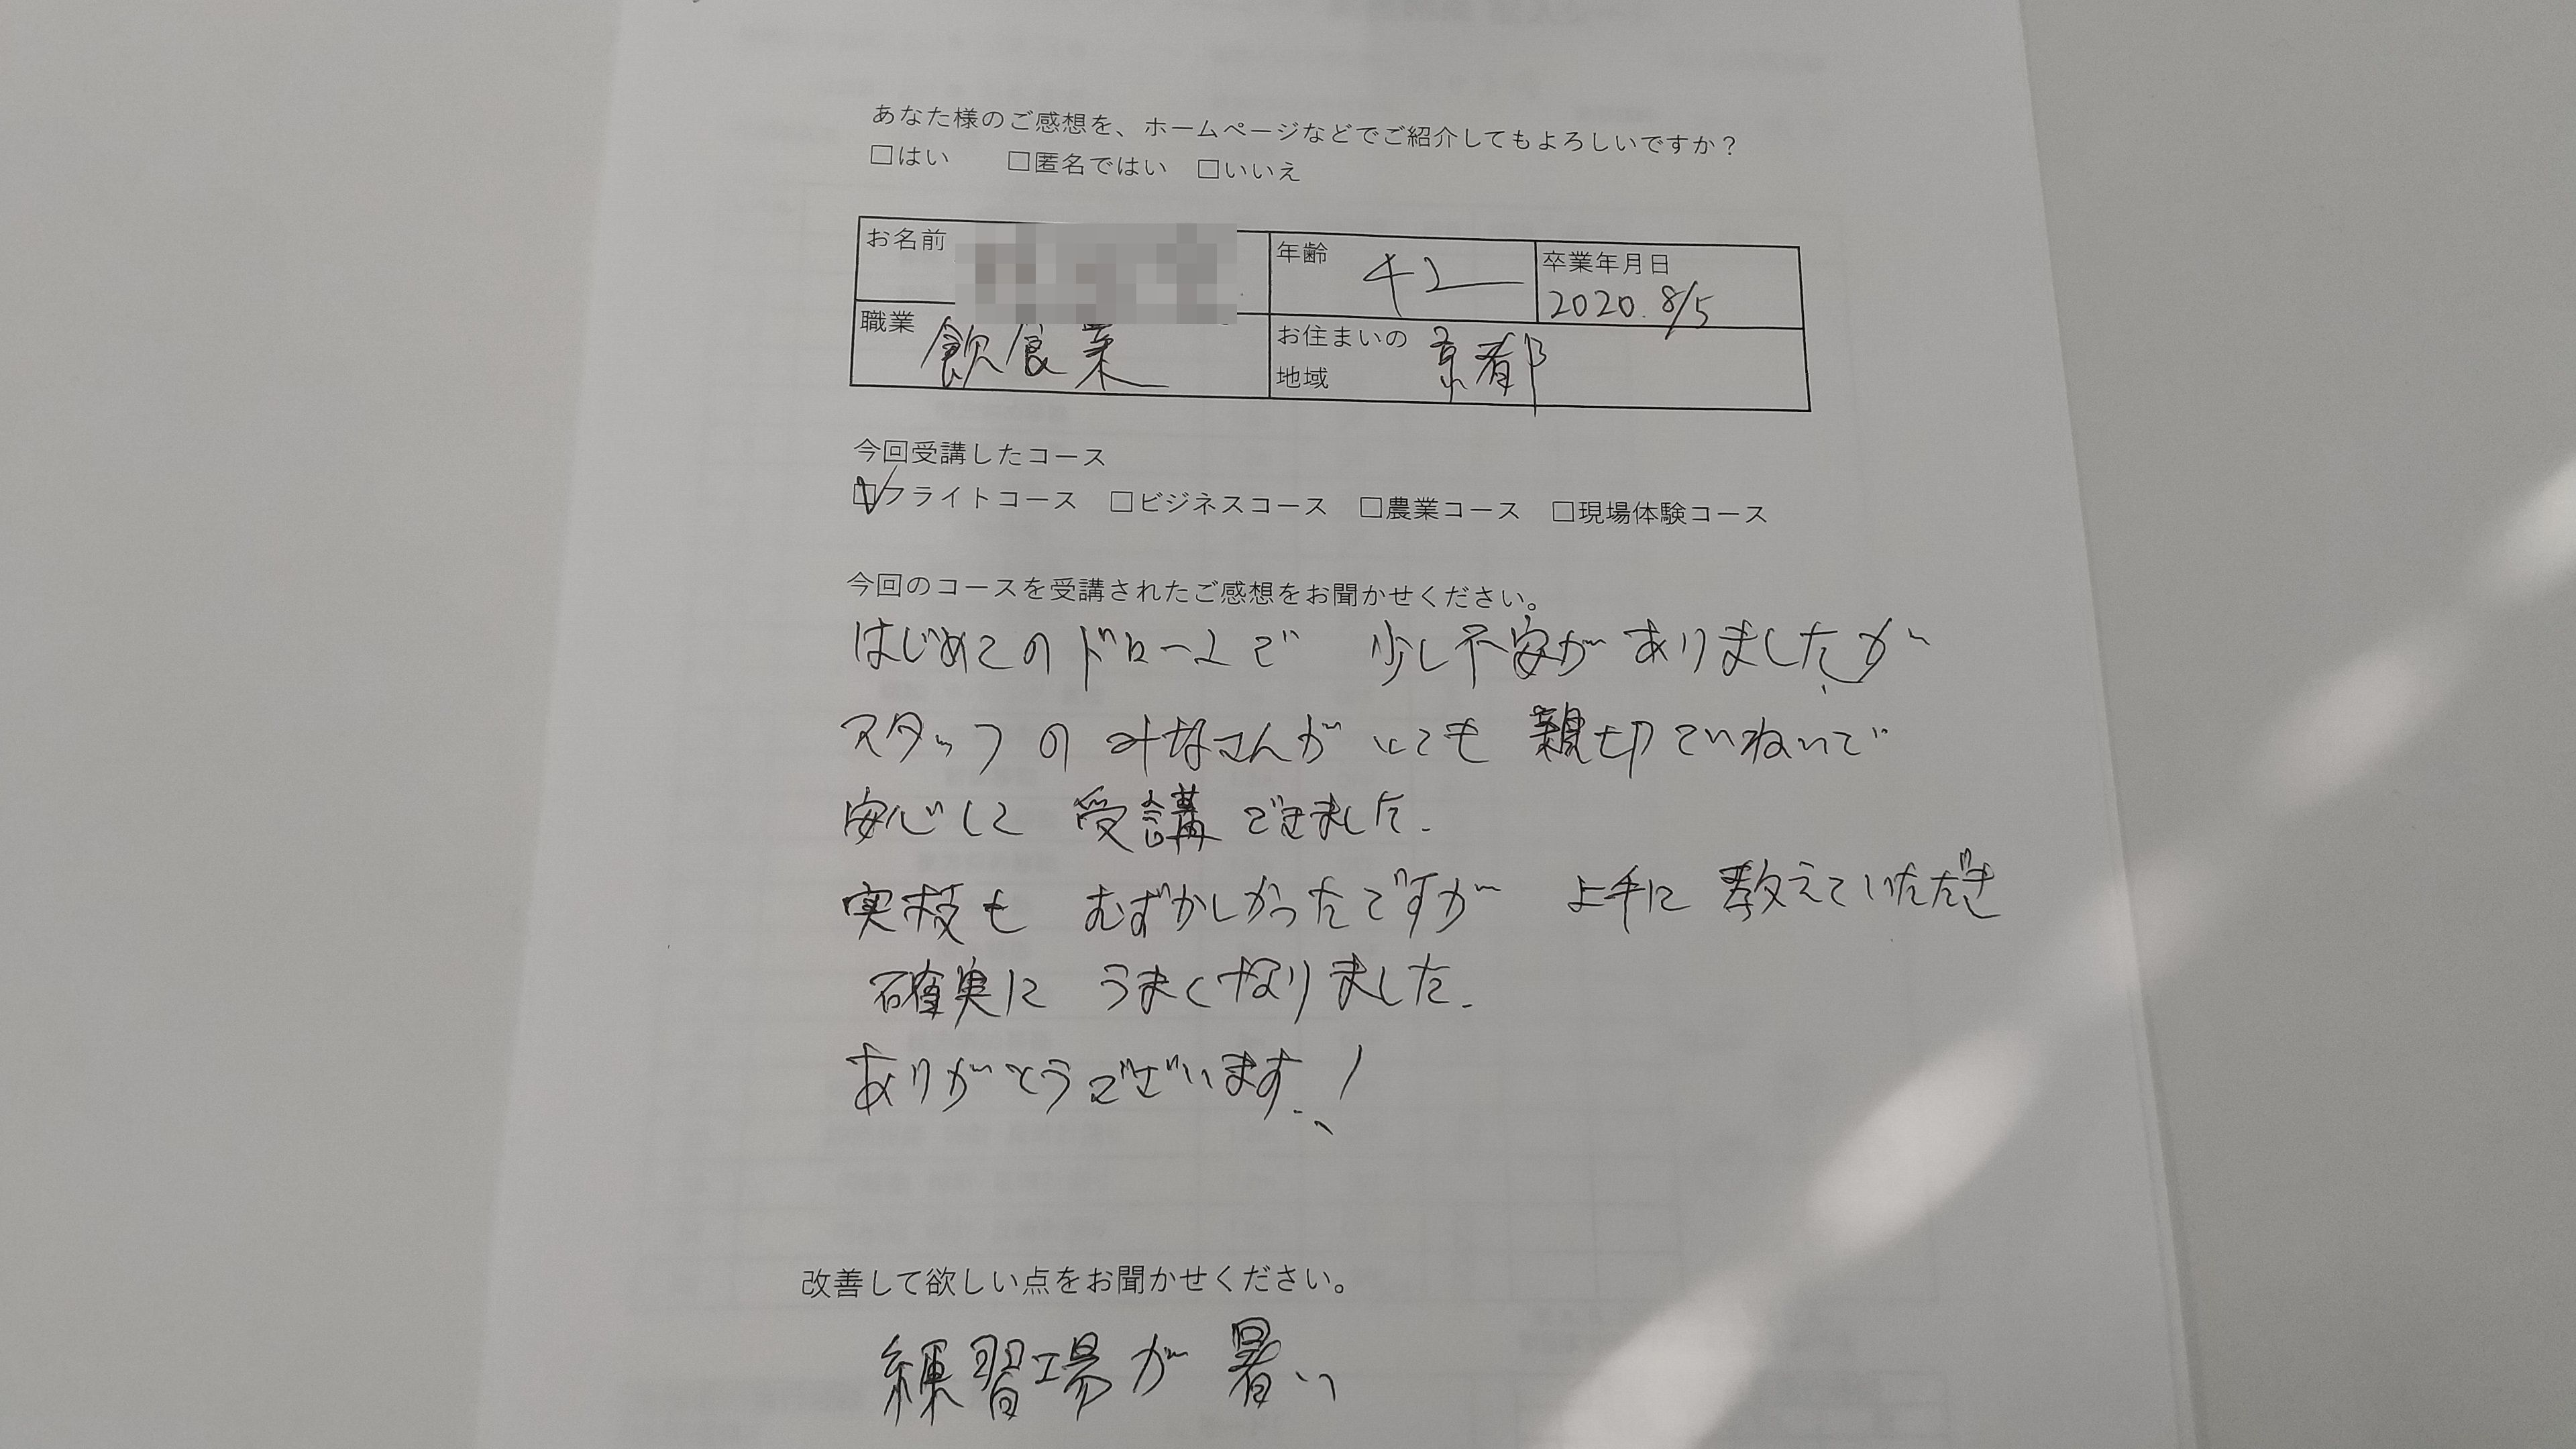 あなた様のご感想を、ホームページなどでご紹介してもよろしいですか？
□はい □匿名ではい □いいえ
お名前
年齢 42
卒業年月日 2020.8/5
職業 飲食業
お住まいの地域 京都
今回受講したコース
☑フライトコース □ビジネスコース □農業コース □現場体験コース
今回のコースを受講されたご感想をお聞かせください。
はじめてのドローンで 少し不安がありましたが、
スタッフのみなさんがとても親切ていねいで
安心して受講できました.
実技もむずかしかったですが 上手に教えていただき
確実にうまくなりました.
ありがとうございます.!
改善して欲しい点をお聞かせください。
練習場が暑い